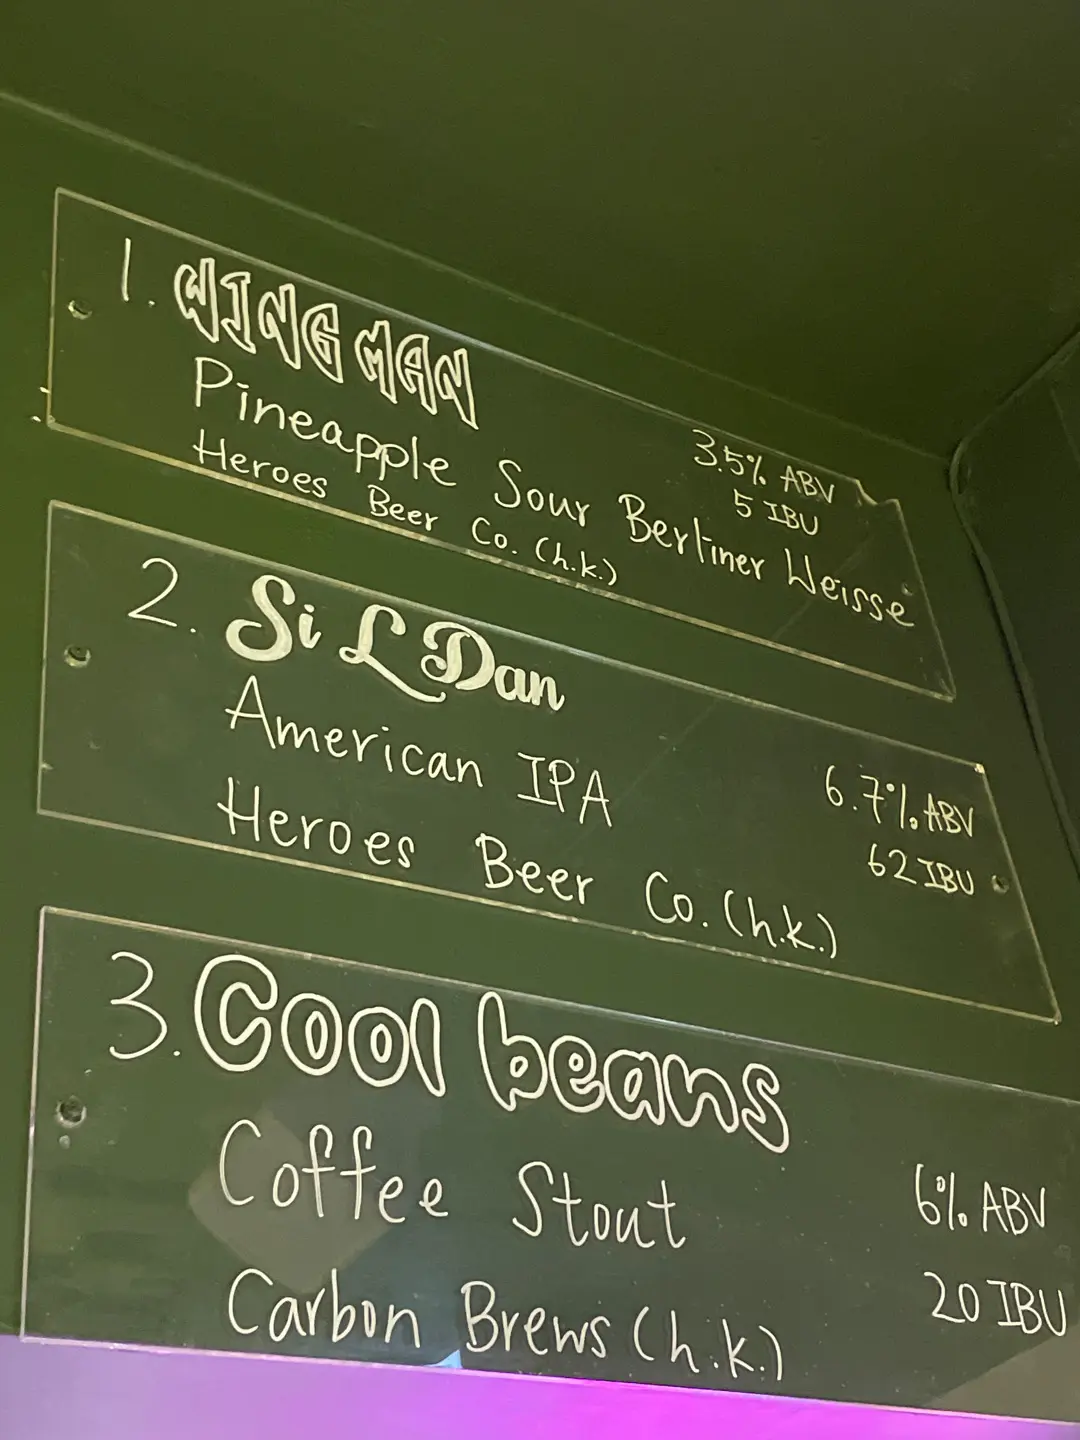 1. WING MAN
3.5% ABV
5 IBU
Pineapple Sour Berliner Weisse
Heroes Beer Co. (h.k.)
2. Si L Dan
American IPA
6.7% ABV
62 IBU
Heroes Beer Co. (h.k.)
3. Cool beans
Coffee Stout
6% ABV
20 IBU
Carbon Brews (h.k.)